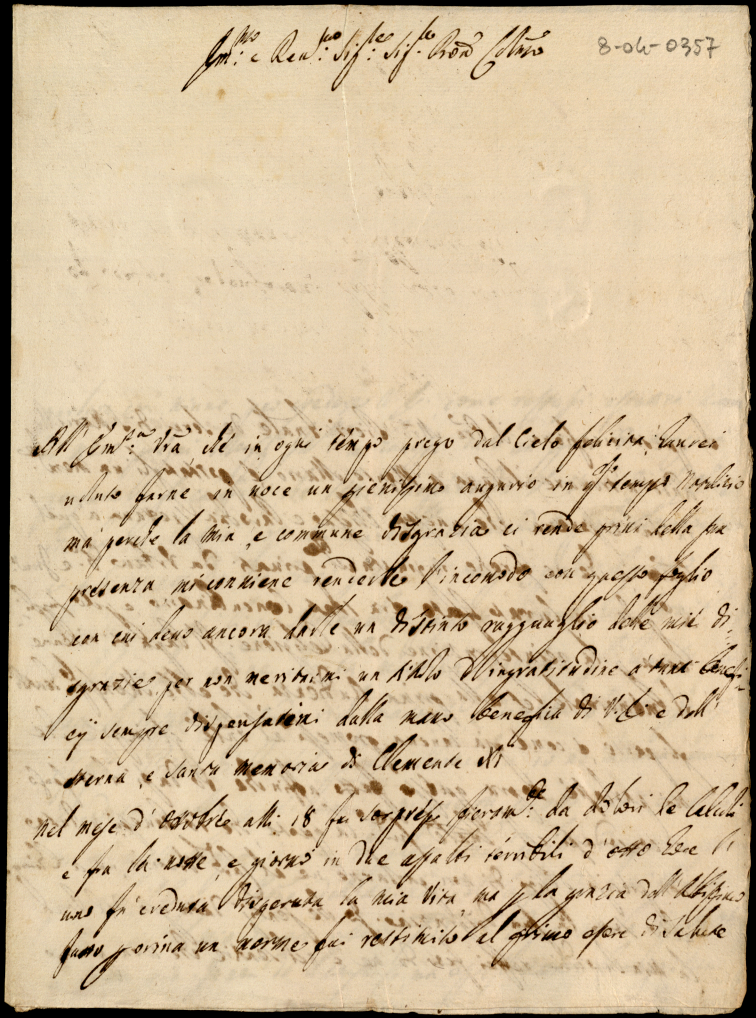 Em:mo e Rev:mo Sig:re Sig:re Pron Col:mo
8-04-0357
All' Em:za Vra, che in ogni tempo prego dal Cielo felicità, haverei
voluto farne in voce un pienissimo augurio in q:to tempo Natalizio
ma perche la mia, e commune disgrazia ci rende privi della sua
presenza mi conviene renderle l'incomodo con questo foglio
con cui devo ancora darle un distinto ragguaglio delle mie di-
sgrazie per non meritarmi un titolo d'ingratitudine a tanti benefi-
cij sempre dispensatimi dalla mano benefica di V.E. e dell'
eterna, e santa memoria di Clemente XI
nel mese d'Ottobre alli 18 fu sorpreso fieram:te da dolori de Calcoli
e fra la notte, e giorno in due assalti terribili d'otto hore l'
uno fu creduta disperata la mia Vita, ma p la grazia dell' Altissimo
p orina un verme fui restituito al primo essere di salute